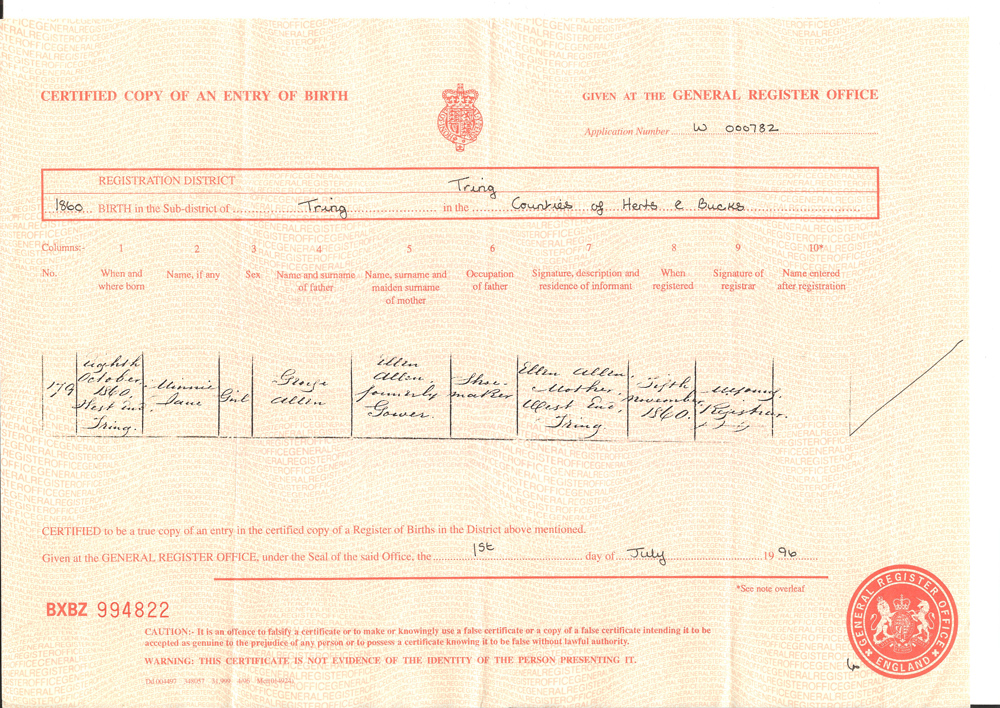 CERTIFIED COPY OF AN ENTRY OF BIRTH
GIVEN AT THE GENERAL REGISTER OFFICE
Application Number W 000782
REGISTRATION DISTRICT Tring
1860 BIRTH in the Sub-district of Tring in the Counties of Herts & Bucks
Columns:- 1 2 3 4 5 6 7 8 9 10*
No. When and where born Name, if any Sex Name and surname of father Name, surname and maiden surname of mother Occupation of father Signature, description and residence of informant When registered Signature of registrar Name entered after registration
179 eighth October 1860. West End Tring. Minnie Jane Girl George Allen Ellen Allen, formerly Gower. Shoe-maker Ellen Allen. Mother West End, Tring. Fifth November 1860. Registrar.
CERTIFIED to be a true copy of an entry in the certified copy of a Register of Births in the District above mentioned.
Given at the GENERAL REGISTER OFFICE, under the Seal of the said Office, the 1st day of July 1996
*See note overleaf
BXBZ 994822
CAUTION:- It is an offence to falsify a certificate or to make or knowingly use a false certificate or a copy of a false certificate intending it to be
accepted as genuine to the prejudice of any person or to possess a certificate knowing it to be false without lawful authority.
WARNING: THIS CERTIFICATE IS NOT EVIDENCE OF THE IDENTITY OF THE PERSON PRESENTING IT.
GENERAL REGISTER OFFICE
ENGLAND